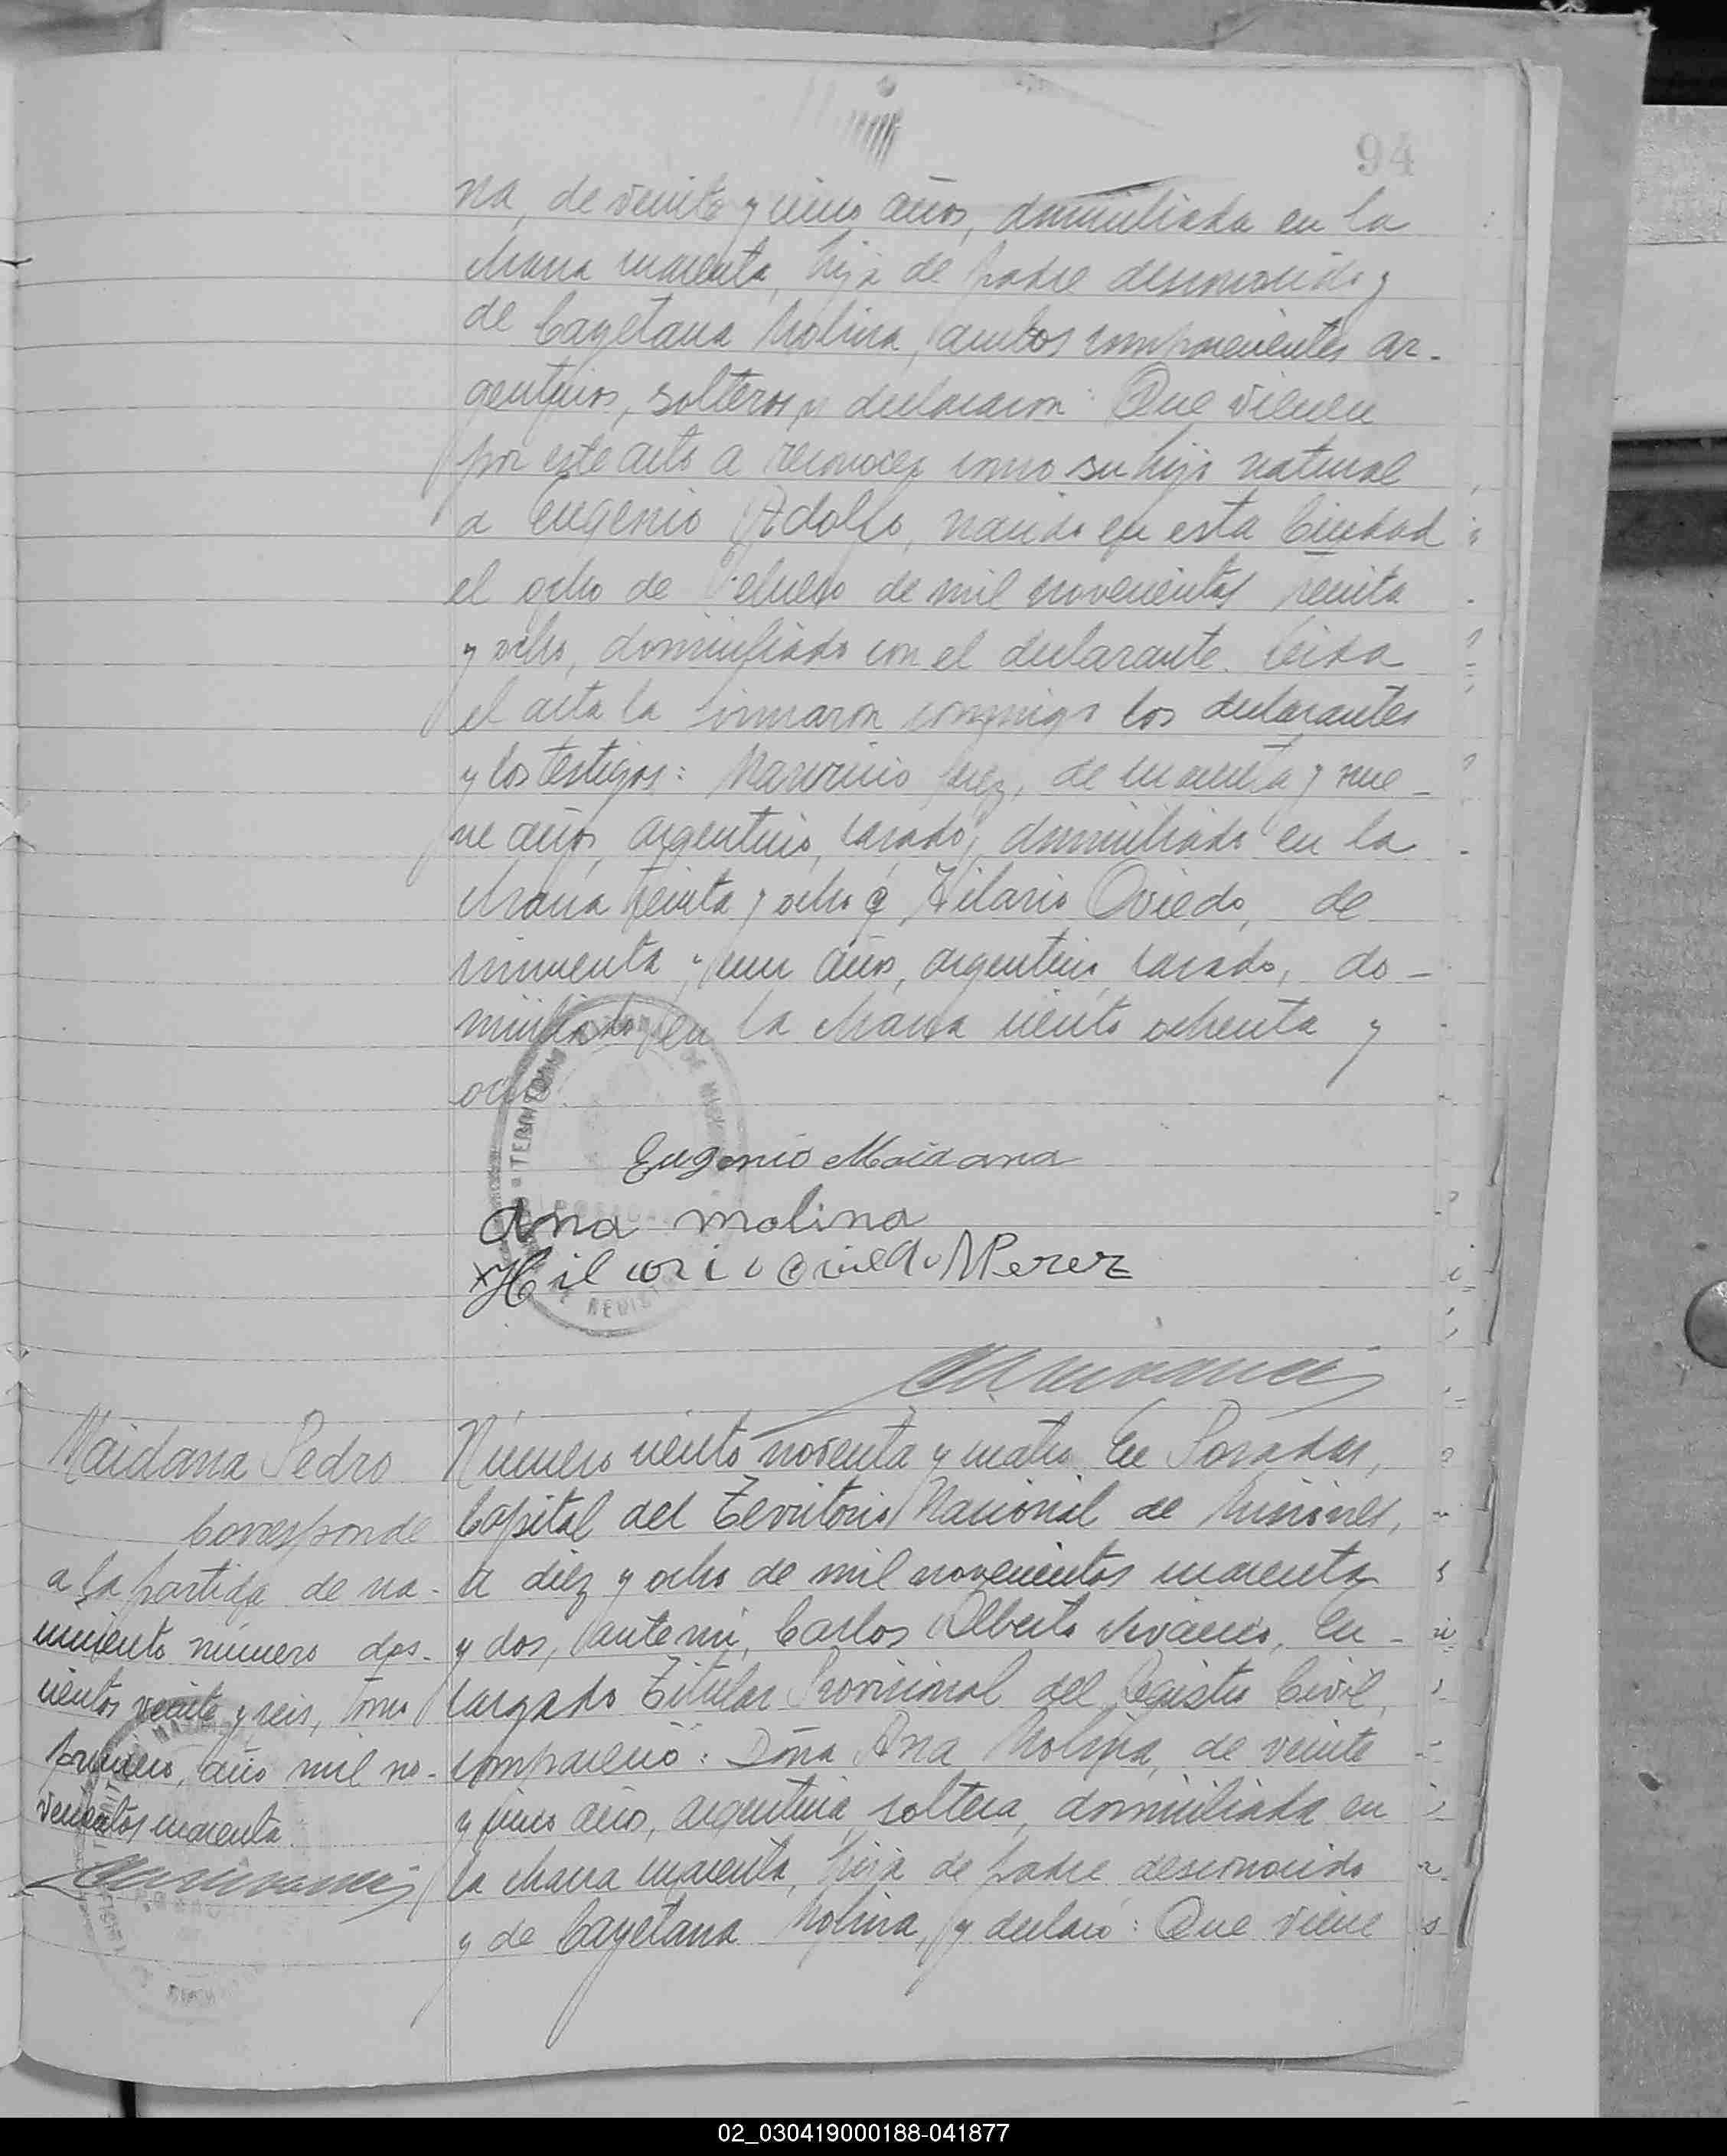 94
na, de veinte y cinco años, domiciliada en la
chacra cuarenta, hija de padre desconocido y
de Cayetana Molina, ambos comparecientes ar-
gentinos, solteros, y declararon: Que vienen
por este acto a reconocer como su hijo natural
a Eugenio Adolfo, nacido en esta Ciudad
el ocho de Febrero de mil novecientos treinta
y ocho, domiciliado con el declarante. Leida
el acta la firmaron conmigo los declarantes
y los testigos: Mauricio Perez, de cuarenta y nue-
ve años, argentino, casado, domiciliado en la
chacra treinta y ocho é Hilario Oviedo, de
cincuenta y un años, argentino, casado, do-
miciliado en la chacra ciento ochenta y
ocho.
Eugenio Maidana
Ana Molina
Hilario Oviedo M Perez
Maidana Pedro
Corresponde
a la partida de na-
cimiento número dos-
cientos veinte y seis, tomo
primero, año mil no-
vecientos cuarenta.
Número ciento noventa y cuatro. En Posadas,
Capital del Territorio Nacional de Misiones,
a diez y ocho de mil novecientos cuarenta
y dos, ante mi, Carlos Alberto Vivanco, En-
cargado Titular Provisional del Registro Civil,
compareció: Doña Ana Molina, de veinte
y cinco años, argentina, soltera, domiciliada en
la chacra cuarenta, hija de padre desconocido
y de Cayetana Molina, y declaró: Que viene
02_030419000188-041877